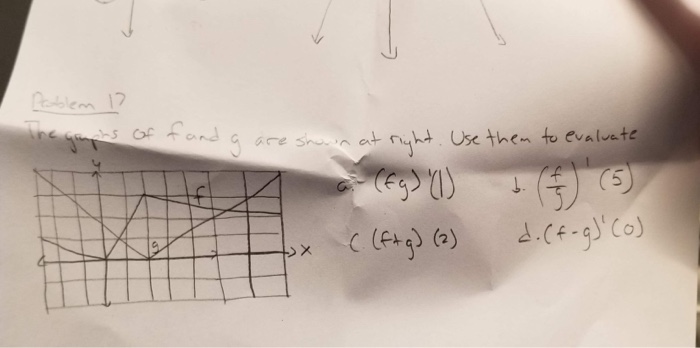 Problem 17
The graphs of f and g are shown at right. Use them to evaluate
y
f
g
x
a. (fg)'(1) b. (f/g)'(5)
c (f+g) (2) d. (f-g)'(0)